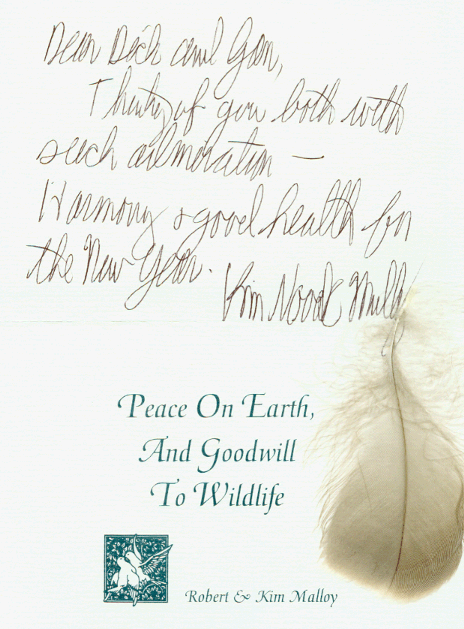 Dear Dick and Gan,
Thinking of you both with
such admiration —
Harmony & good health for
the New Year.
Kim Novak
Peace On Earth,
And Goodwill
To Wildlife
Robert & Kim Malloy